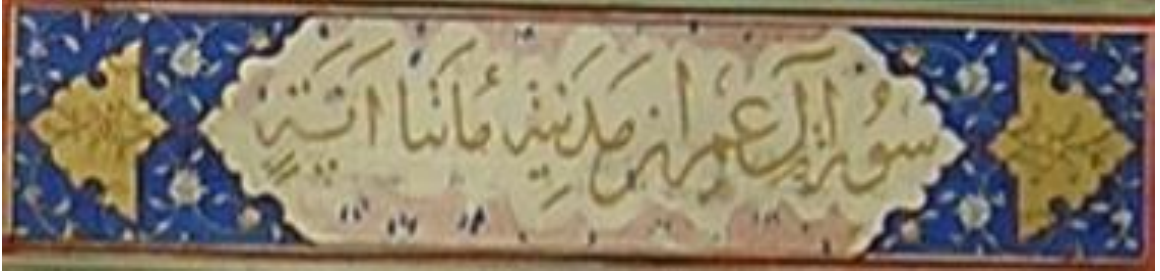 سورة آل عمران مدنیة مائتا آیة